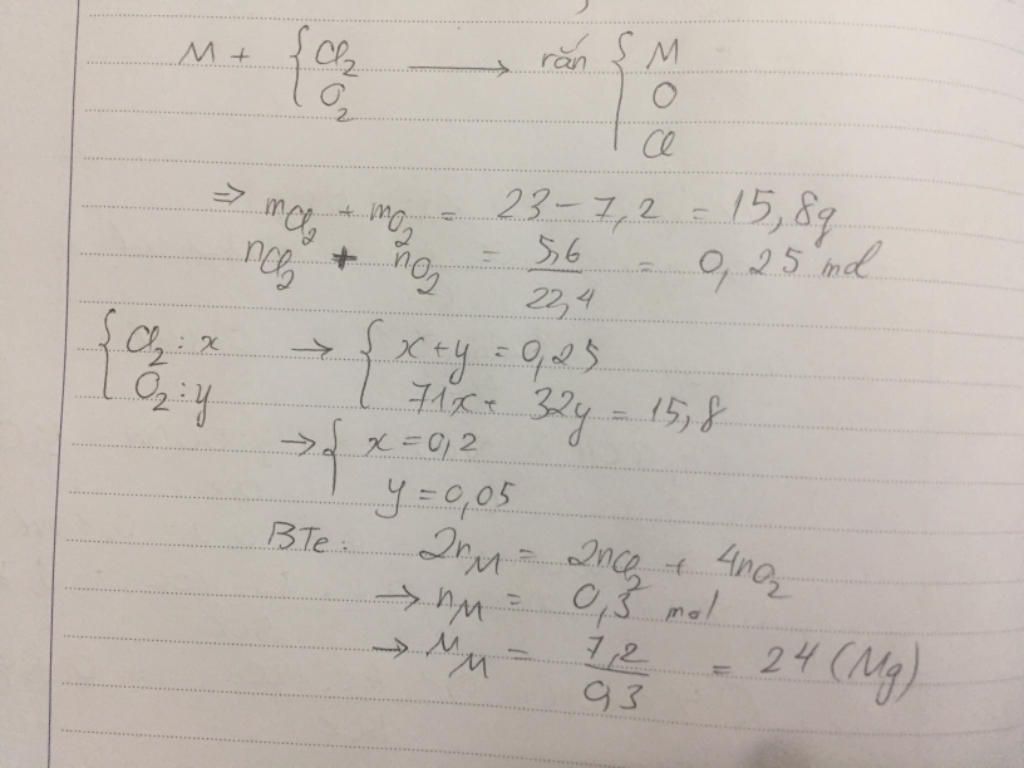 M + { Cl₂ O₂ ⟶ rắn { M O Cl
⇒ mCl₂ + mO₂ = 23 - 7,2 = 15,8g
nCl₂ + nO₂ = 5,6/22,4 = 0,25 mol
{ Cl₂ : x O₂ : y → { x + y = 0,25 71x + 32y = 15,8
→ { x = 0,2 y = 0,05
BTe : 2nM = 2nCl₂ + 4nO₂
→ nM = 0,3 mol
→ MM = 7,2/0,3 = 24 (Mg)